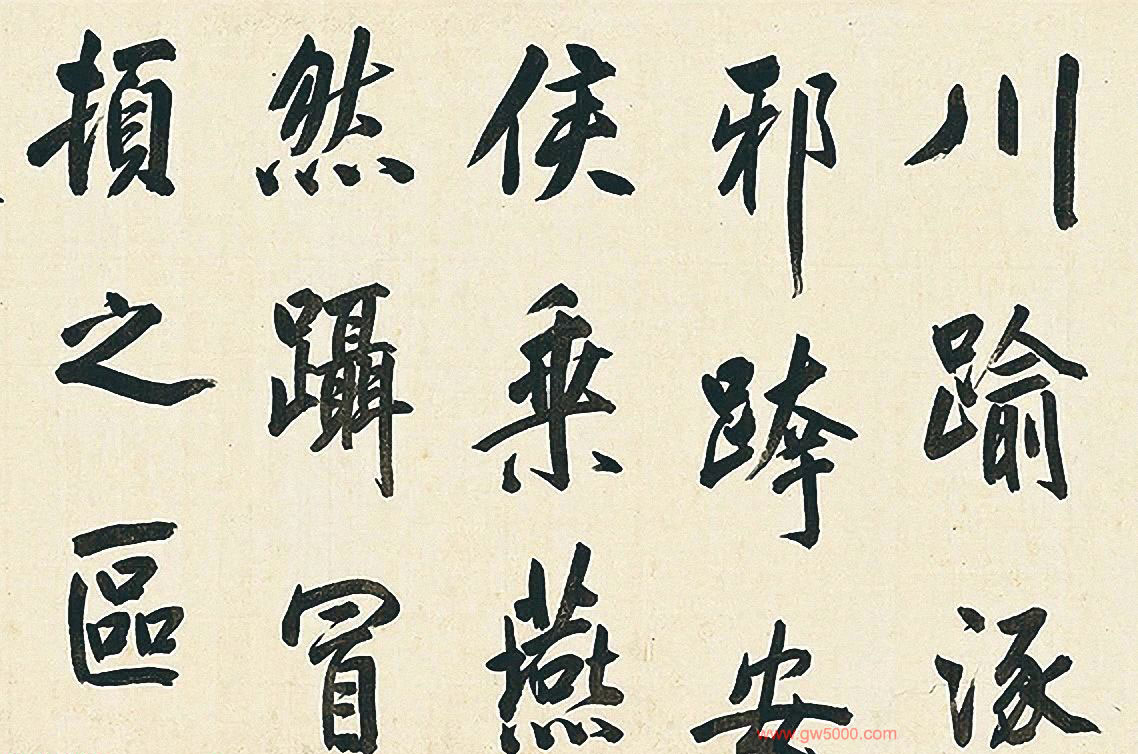 川踰涿
邪跨安
侯乗燕
然躡冒
頓之區
www.gw5000.com